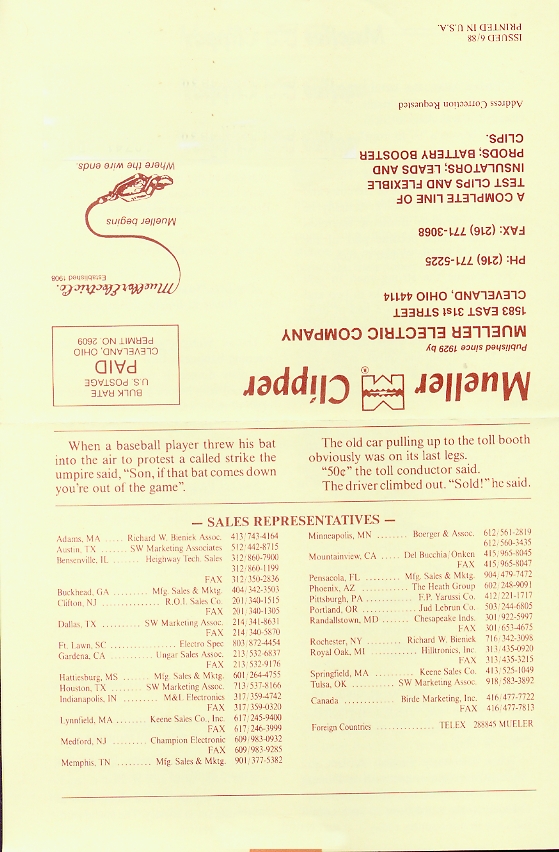 Mueller Clipper
Published since 1929 by
MUELLER ELECTRIC COMPANY
1583 EAST 31st STREET
CLEVELAND, OHIO 44114
PH: (216) 771-5225
FAX: (216) 771-3068
A COMPLETE LINE OF
TEST CLIPS AND FLEXIBLE
INSULATORS; LEADS AND
PRODS; BATTERY BOOSTER
CLIPS.
Address Correction Requested
ISSUED 6/88
PRINTED IN U.S.A.
BULK RATE
U.S. POSTAGE
PAID
CLEVELAND, OHIO
PERMIT NO. 2609
Mueller Electric Co.
Established 1908
Mueller begins
Where the wire ends.
When a baseball player threw his bat
into the air to protest a called strike the
umpire said, “Son, if that bat comes down
you're out of the game”.
The old car pulling up to the toll booth
obviously was on its last legs.
“50¢” the toll conductor said.
The driver climbed out. “Sold!” he said.
— SALES REPRESENTATIVES —
Adams, MA ..... Richard W. Bieniek Assoc. 413/743-4164
Austin, TX ....... SW Marketing Associates 512/442-8715
Bensenville, IL ....... Heighway Tech. Sales 312/860-7900
312/860-1199
FAX 312/350-2836
Buckhead, GA ......... Mfg. Sales & Mktg. 404/342-3503
Clifton, NJ ................. R.O.I. Sales Co. 201/340-1515
FAX 201/340-1305
Dallas, TX ........... SW Marketing Assoc. 214/341-8631
FAX 214/340-5870
Ft. Lawn, SC ................... Electro Spec 803/872-4454
Gardena, CA .......... Ungar Sales Assoc. 213/532-6837
FAX 213/532-9176
Hattiesburg, MS ...... Mfg. Sales & Mktg. 601/264-4755
Houston, TX ....... SW Marketing Assoc. 713/537-8166
Indianapolis, IN ........... M&L Electronics 317/359-4742
FAX 317/359-0320
Lynnfield, MA ...... Keene Sales Co., Inc. 617/245-9400
FAX 617/246-3999
Medford, NJ ........ Champion Electronic 609/983-0932
FAX 609/983-9285
Memphis, TN ......... Mfg. Sales & Mktg. 901/377-5382
Minneapolis, MN ....... Boerger & Assoc. 612/561-2819
612/560-3435
Mountainview, CA ..... Del Bucchia/Onken 415/965-8045
FAX 415/965-8047
Pensacola, FL ......... Mfg. Sales & Mktg. 904/479-7472
Phoenix, AZ ............. The Heath Group 602/248-0091
Pittsburgh, PA ............ F.P. Yarussi Co. 412/221-1717
Portland, OR ............. Jud Lebrun Co. 503/244-6805
Randallstown, MD ...... Chesapeake Inds. 301/922-5997
FAX 301/653-4675
Rochester, NY ......... Richard W. Bieniek 716/342-3098
Royal Oak, MI ............ Hilltronics, Inc. 313/435-0920
FAX 313/435-3215
Springfield, MA ............ Keene Sales Co. 413/525-1049
Tulsa, OK ............ SW Marketing Assoc. 918/583-3892
Canada ............ Birde Marketing, Inc. 416/477-7722
FAX 416/477-7813
Foreign Countries .............. TELEX 288845 MUELER